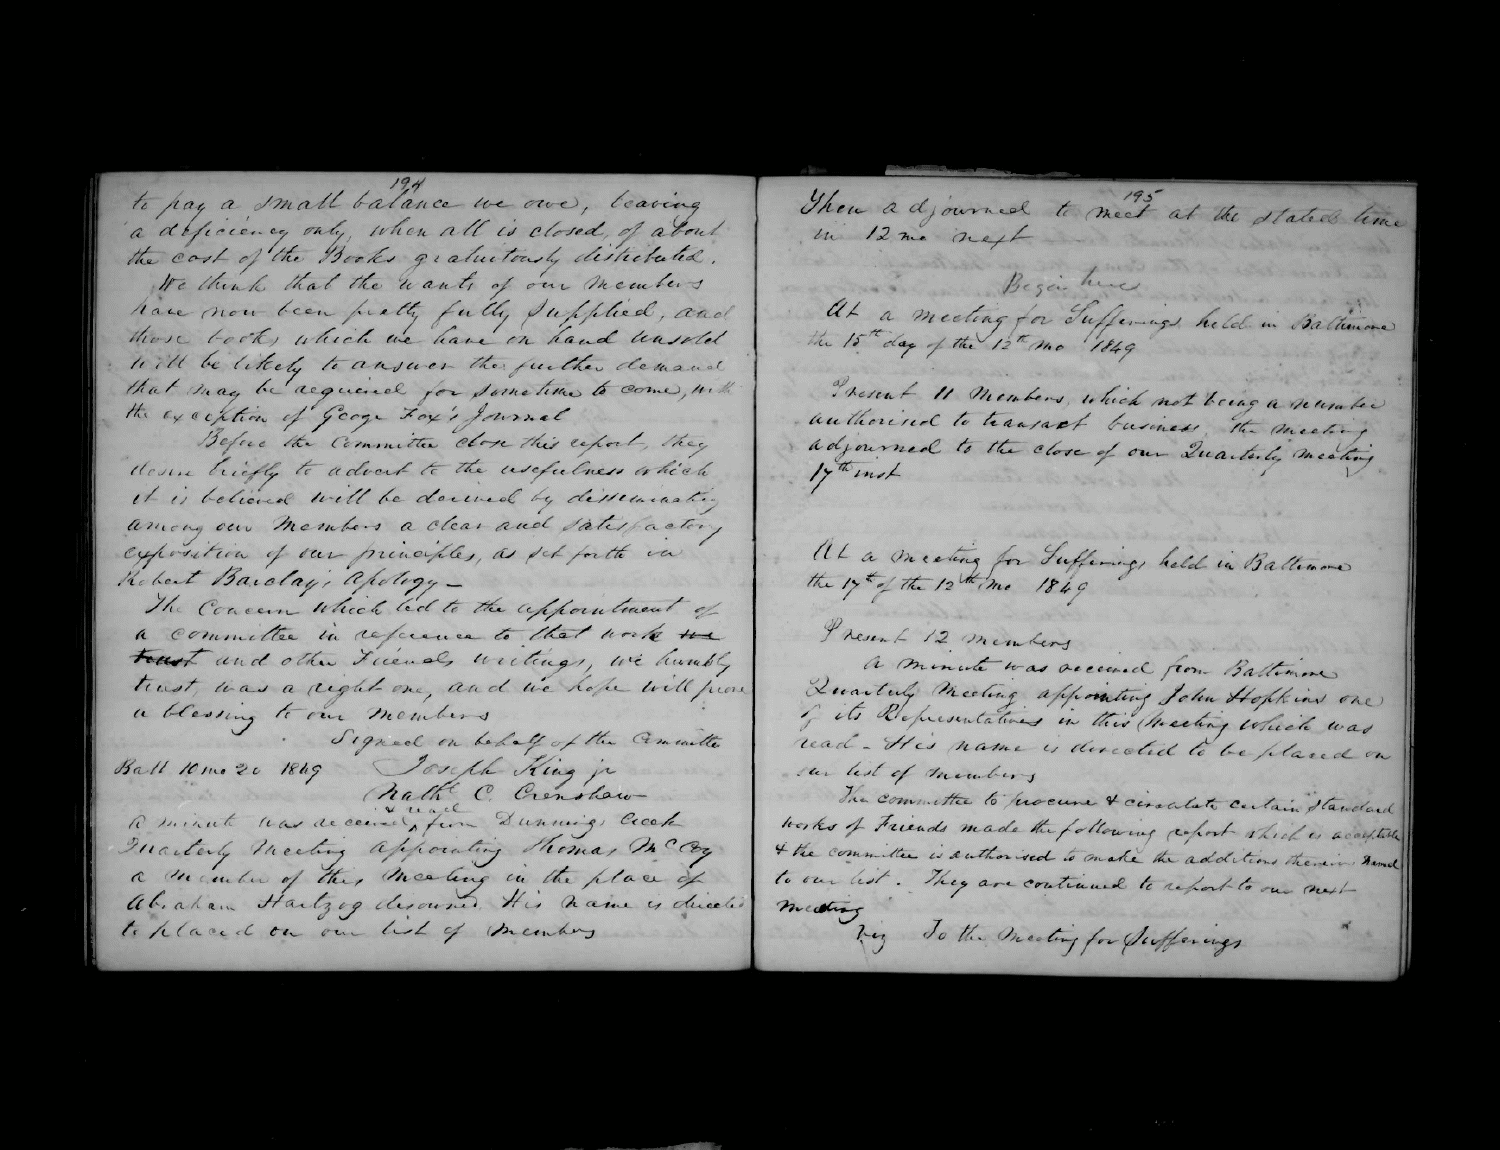 194
to pay a small balance we owe, leaving
a deficiency only, when all is closed, of about
the cost of the Books gratuitously distributed.
We think that the wants of our members
have now been pretty fully supplied, and
those books which we have on hand unsold
will be likely to answer the further demand
that may be required for sometime to come, with
the exception of Geoge Fox's Journal
Before the Committee close this report, they
desire briefly to advert to the usefulness which
it is believed will be derived by disseminating
among our members a clear and satisfactory
exposition of our principles, as set forth in
Robert Barclay's Apology—
The Concern which led to the appointment of
a committee in reference to that work we
trust and other Friends writings, we humbly
trust, was a right one, and we hope will prove
a blessing to our members
Signed on behalf of the Committee
Balt 10 mo 20 1849 Joseph King jr
Nathl C. Crenshaw
& read
a minute was received, from Dunnings Creek
Quarterly Meeting appointing Thomas McCoy
a member of this Meeting in the place of
Abraham Hartzog disowned. His name is directed
to placed on our list of members
195
Then adjourned to meet at the stated time
in 12 mo next
Begin here
At a meeting for Sufferings held in Baltimore
the 15th day of the 12th mo 1849
Present 11 Members, which not being a number
authorised to transact business the meeting
adjourned to the close of our Quarterly meeting
17th inst
At a meeting for Sufferings held in Baltimore
the 17th of the 12th mo 1849
Present 12 members
a minute was received from Baltimore
Quarterly Meeting appointing John Hopkins one
of its Representatives in this Meeting which was
read - His name is directed to be placed on
our list of members
The committee to procure & circulate certain standard
works of Friends made the following report which is acceptable
& the committee is authorised to make the additions therein named
to our list. They are continued to report to our next
meeting
Viz To the Meeting for Sufferings